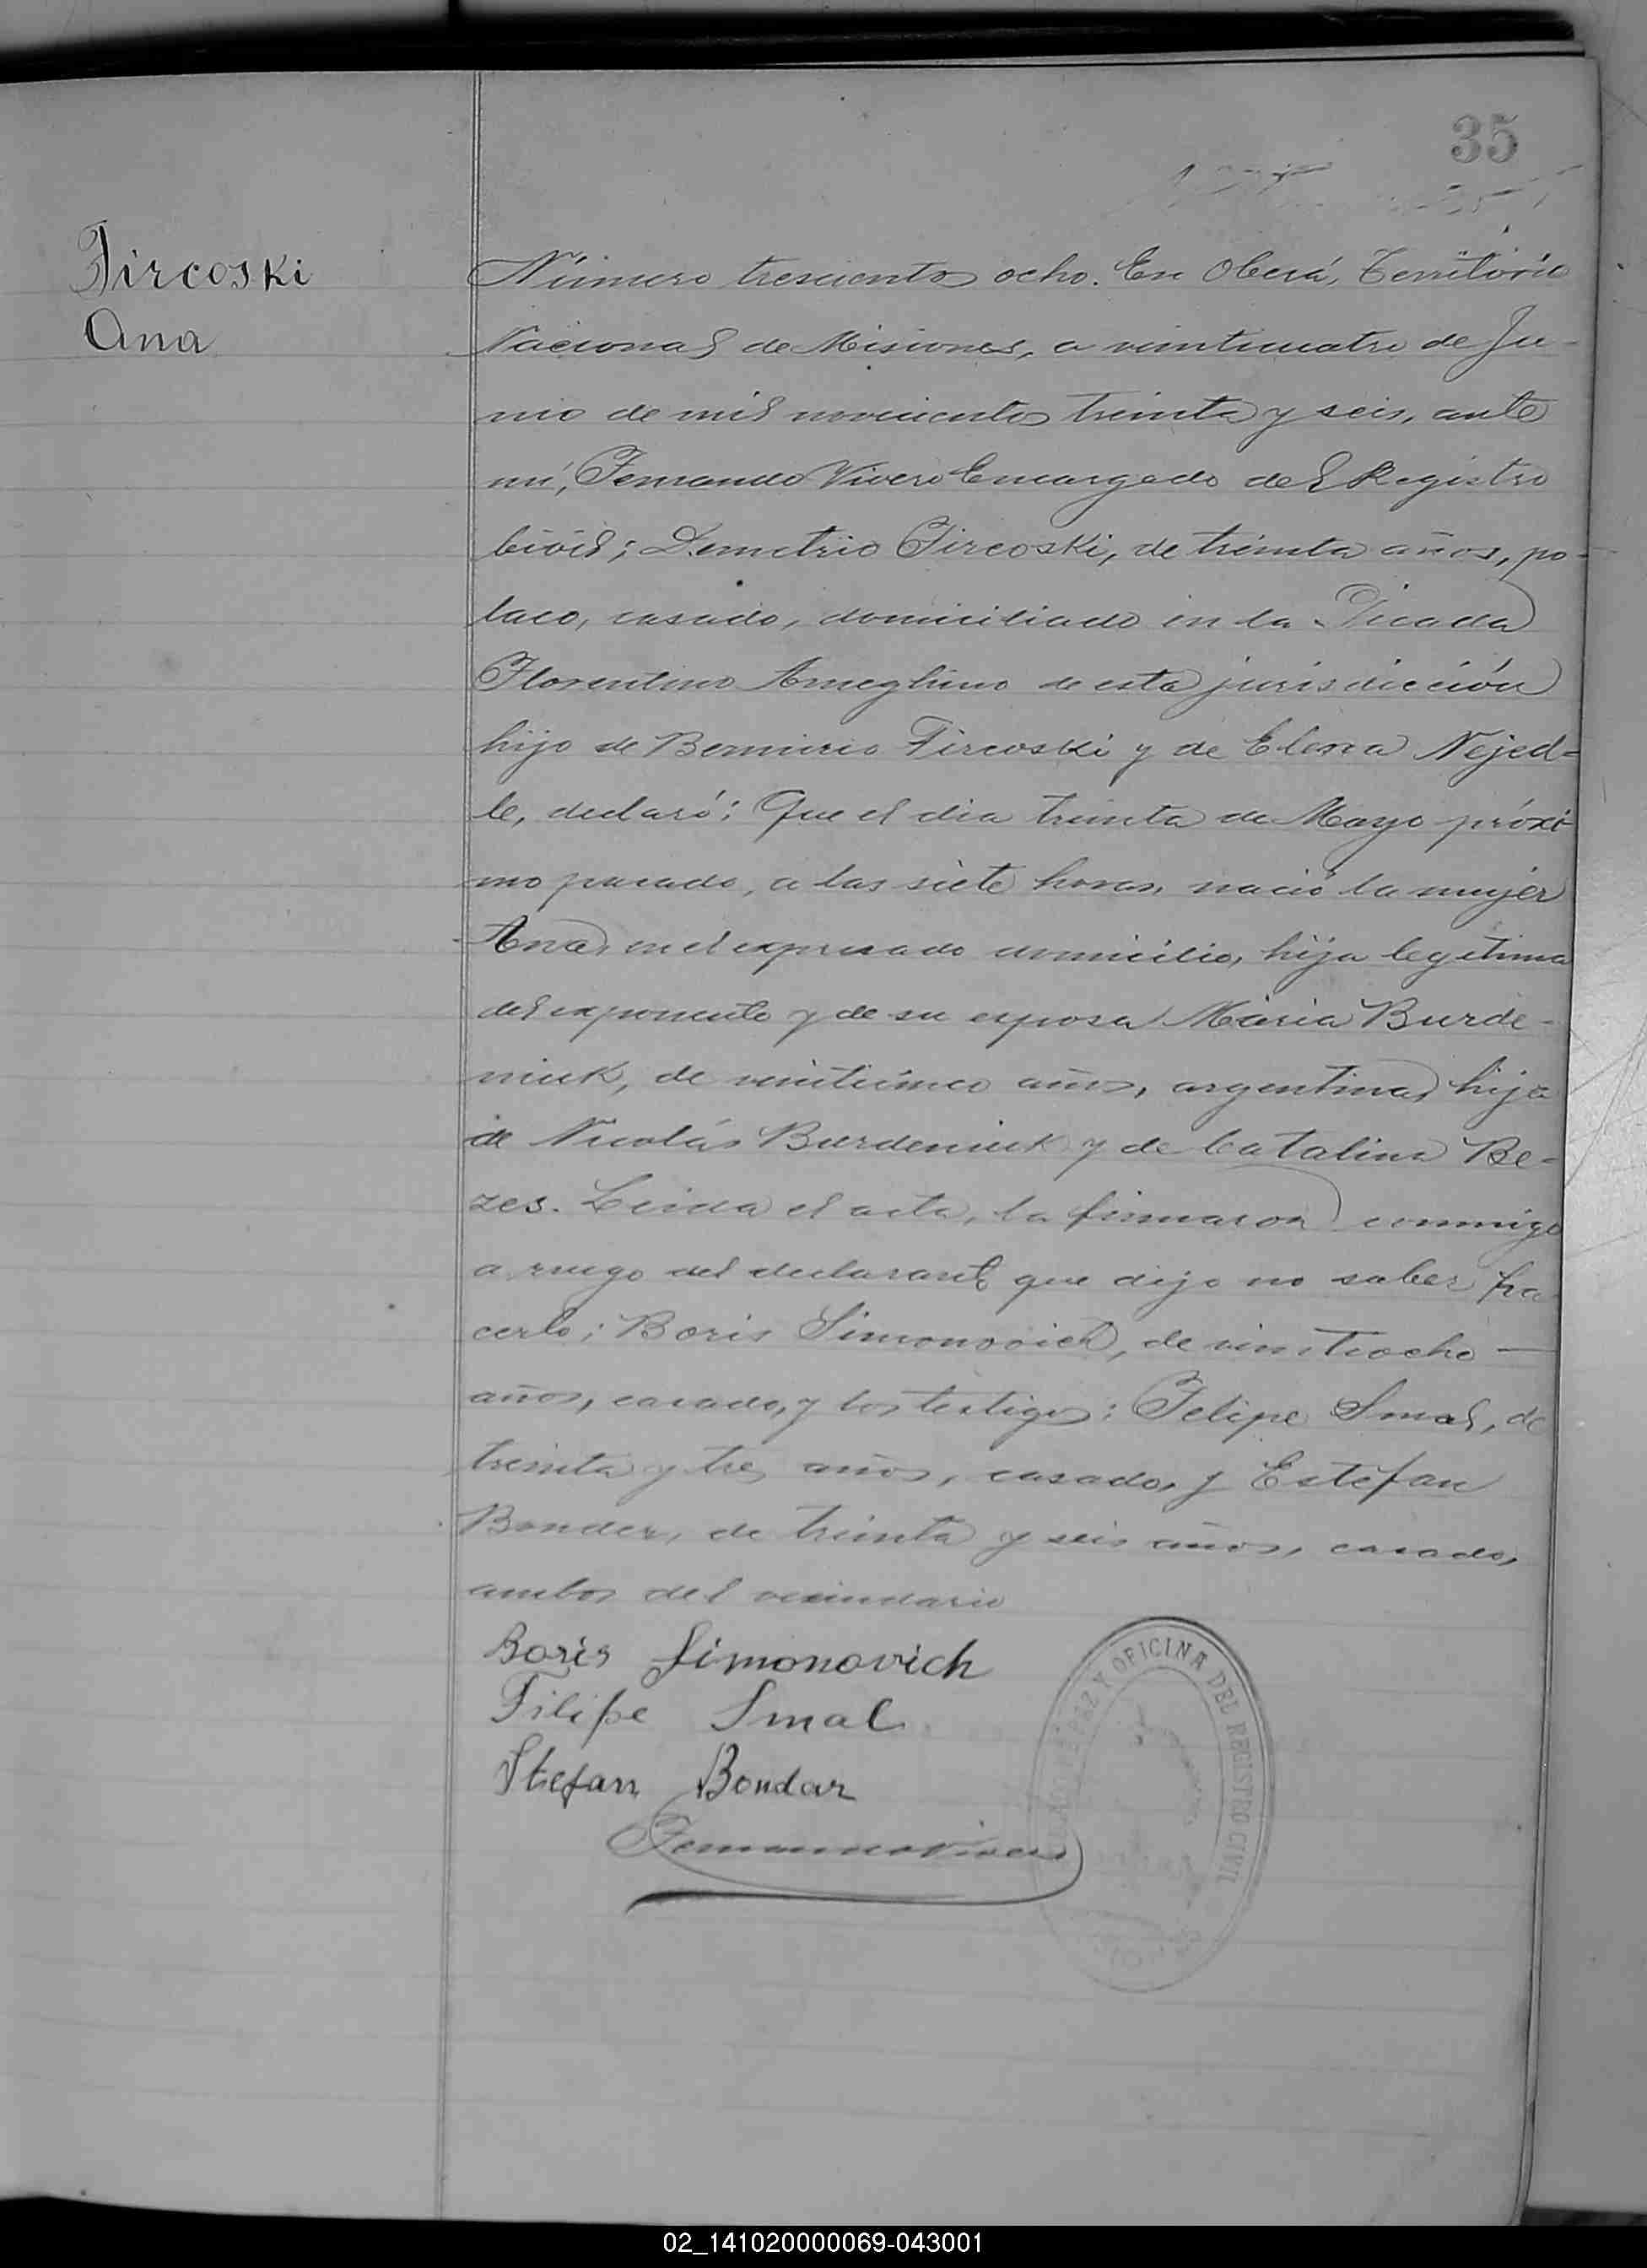 35
Fircoski
Ana
Número trescientos ocho. En Oberá, Territorio
Nacional de Misiones, a veinticuatro de Ju-
nio de mil novecientos treinta y seis, ante
mí, Fernando Vivero Encargado del Registro
Civil; Demetrio Fircoski, de treinta años, po-
laco, casado, domiciliado en la Picada
Florentino Ameghino de esta jurisdicción
hijo de Fircoski y de Elena Nejed=
le, declaró: Que el dia treinta de Mayo próxi-
mo pasado, a las siete horas, nació la mujer
Ana, en el expresado domicilio, hija legítima
del exponente y de su esposa María Burde-
niuk, de veinticinco años, argentina, hija
de Nicolás Burdeniuk y de Catalina Be-
zes. Leida el acta, la firmaron conmigo
a ruego del declarante que dijo no saber ha-
cerlo; Boris Simonovich, de veintiocho —
años, casado, y los testigos: Felipe Smal, de
treinta y tres años, casado, y Estefan
Bonder, de treinta y seis años, casado,
ambos del vecindario
Boris Simonovich
Filipe Smal
Stefan Bondar
Fernando Vivero
PAZ Y OFICINA DEL REGISTRO CIVIL
02_141020000069-043001